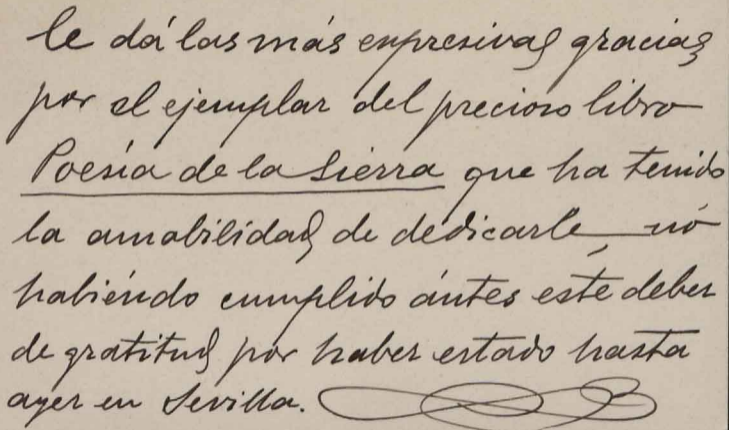 le dá las más expresivas gracias
por el ejemplar del precioso libro
Poesía de la Sierra que ha tenido
la amabilidad de dedicarle, nó
habiéndo cumplido ántes este deber
de gratitud por haber estado hasta
ayer en Sevilla.